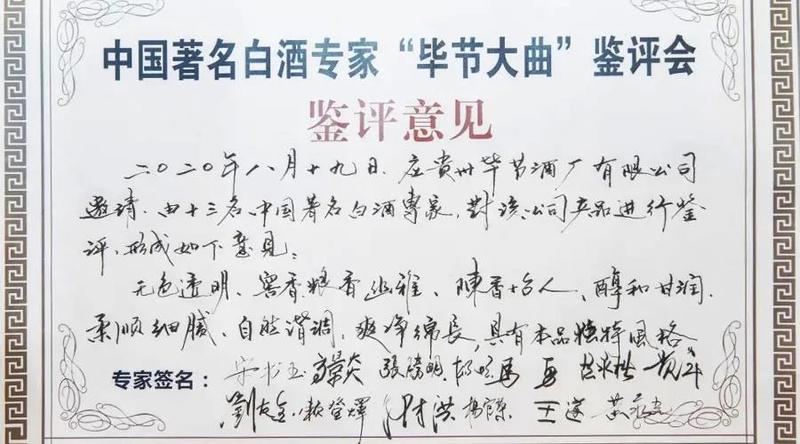 中国著名白酒专家“毕节大曲”鉴评会
鉴评意见
二〇二〇年八月十九日，应贵州毕节酒厂有限公司
邀请，由十三名中国著名白酒專家，對该公司产品进行鉴
评，形成如下意見：
无色透明、窖香粮香幽雅、陳香怡人、醇和甘润、
柔順细腻、自然谐调、爽净绵長，具有本品独特風格
专家签名： 宋书玉 張 明
劉友金 楊 王